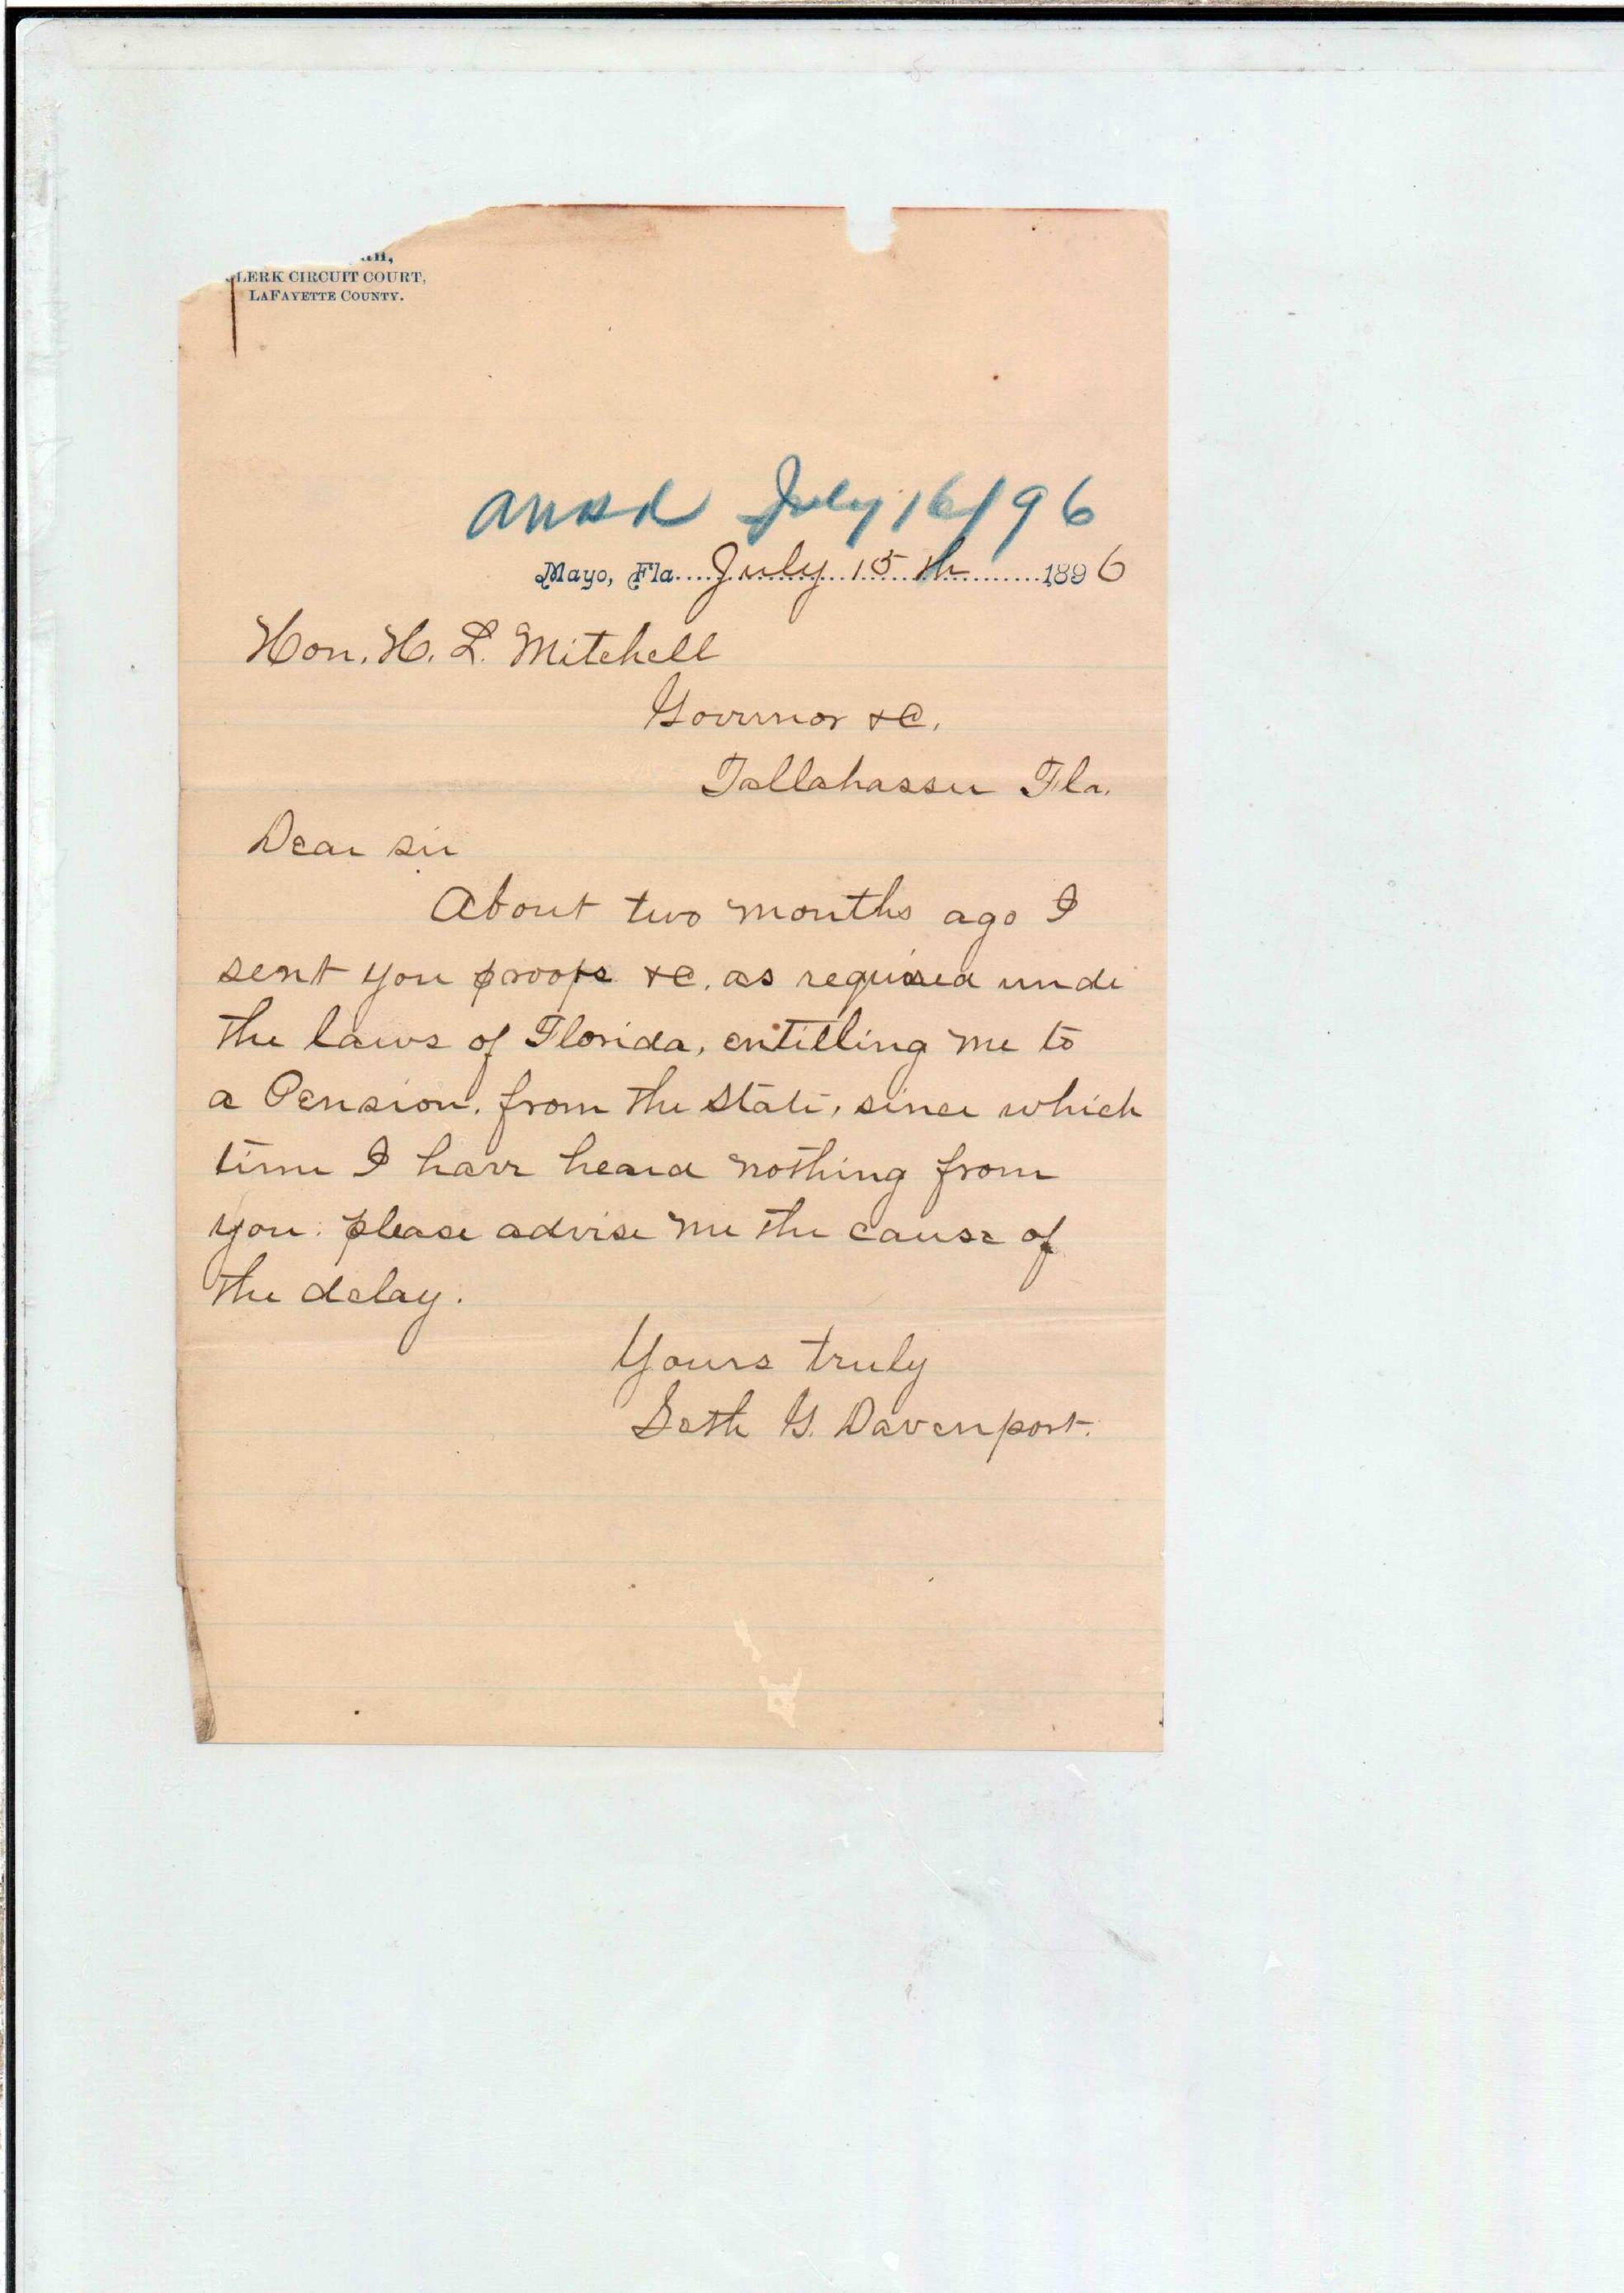 LERK CIRCUIT COURT,
LAFAYETTE COUNTY.
ansd July 16/96
Mayo, Fla. July 15th 1896
Hon. H. L. Mitchell
Governor &C.
Tallahassee Fla.
Dear sir
About two months ago I
sent you proofs &C. as required under
the laws of Florida, entitling me to
a Pension. from the state, since which
time I have heard nothing from
you. please advise me the cause of
the delay.
Yours truly
Seth G. Davenport.